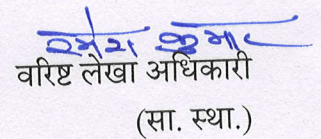 रमेश कुमार
वरिष्ट लेखा अधिकारी
(सा. स्था.)